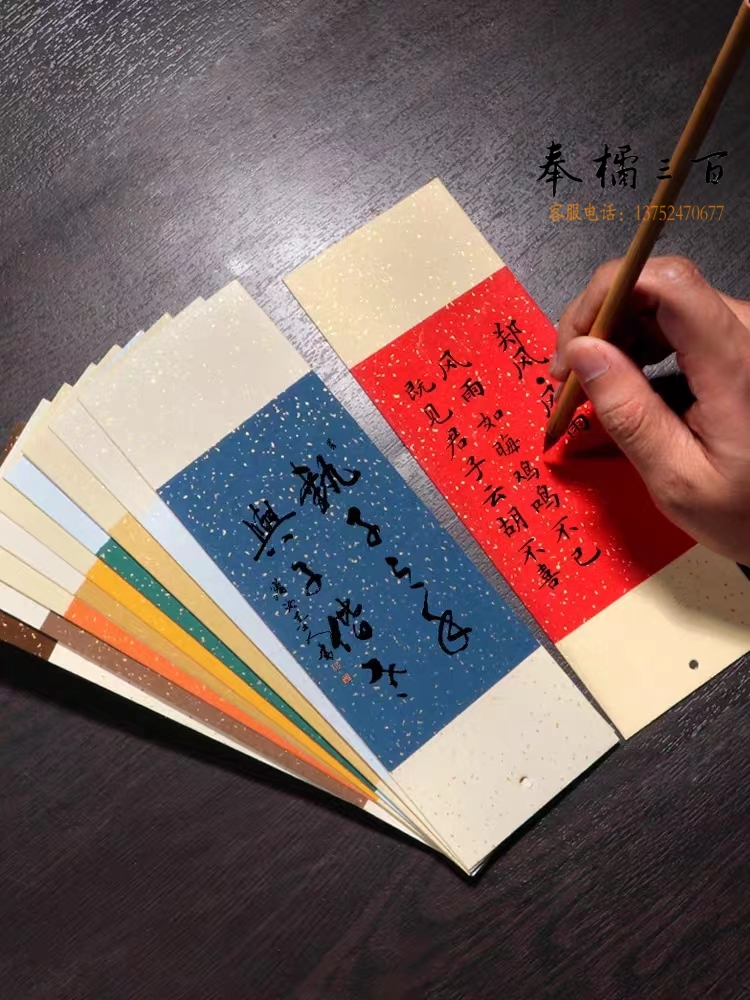 奉橘三百
客服电话：13752470677
郑风·风雨
风雨如晦鸡鸣不已
既见君子云胡不喜
執子之手
與子偕老